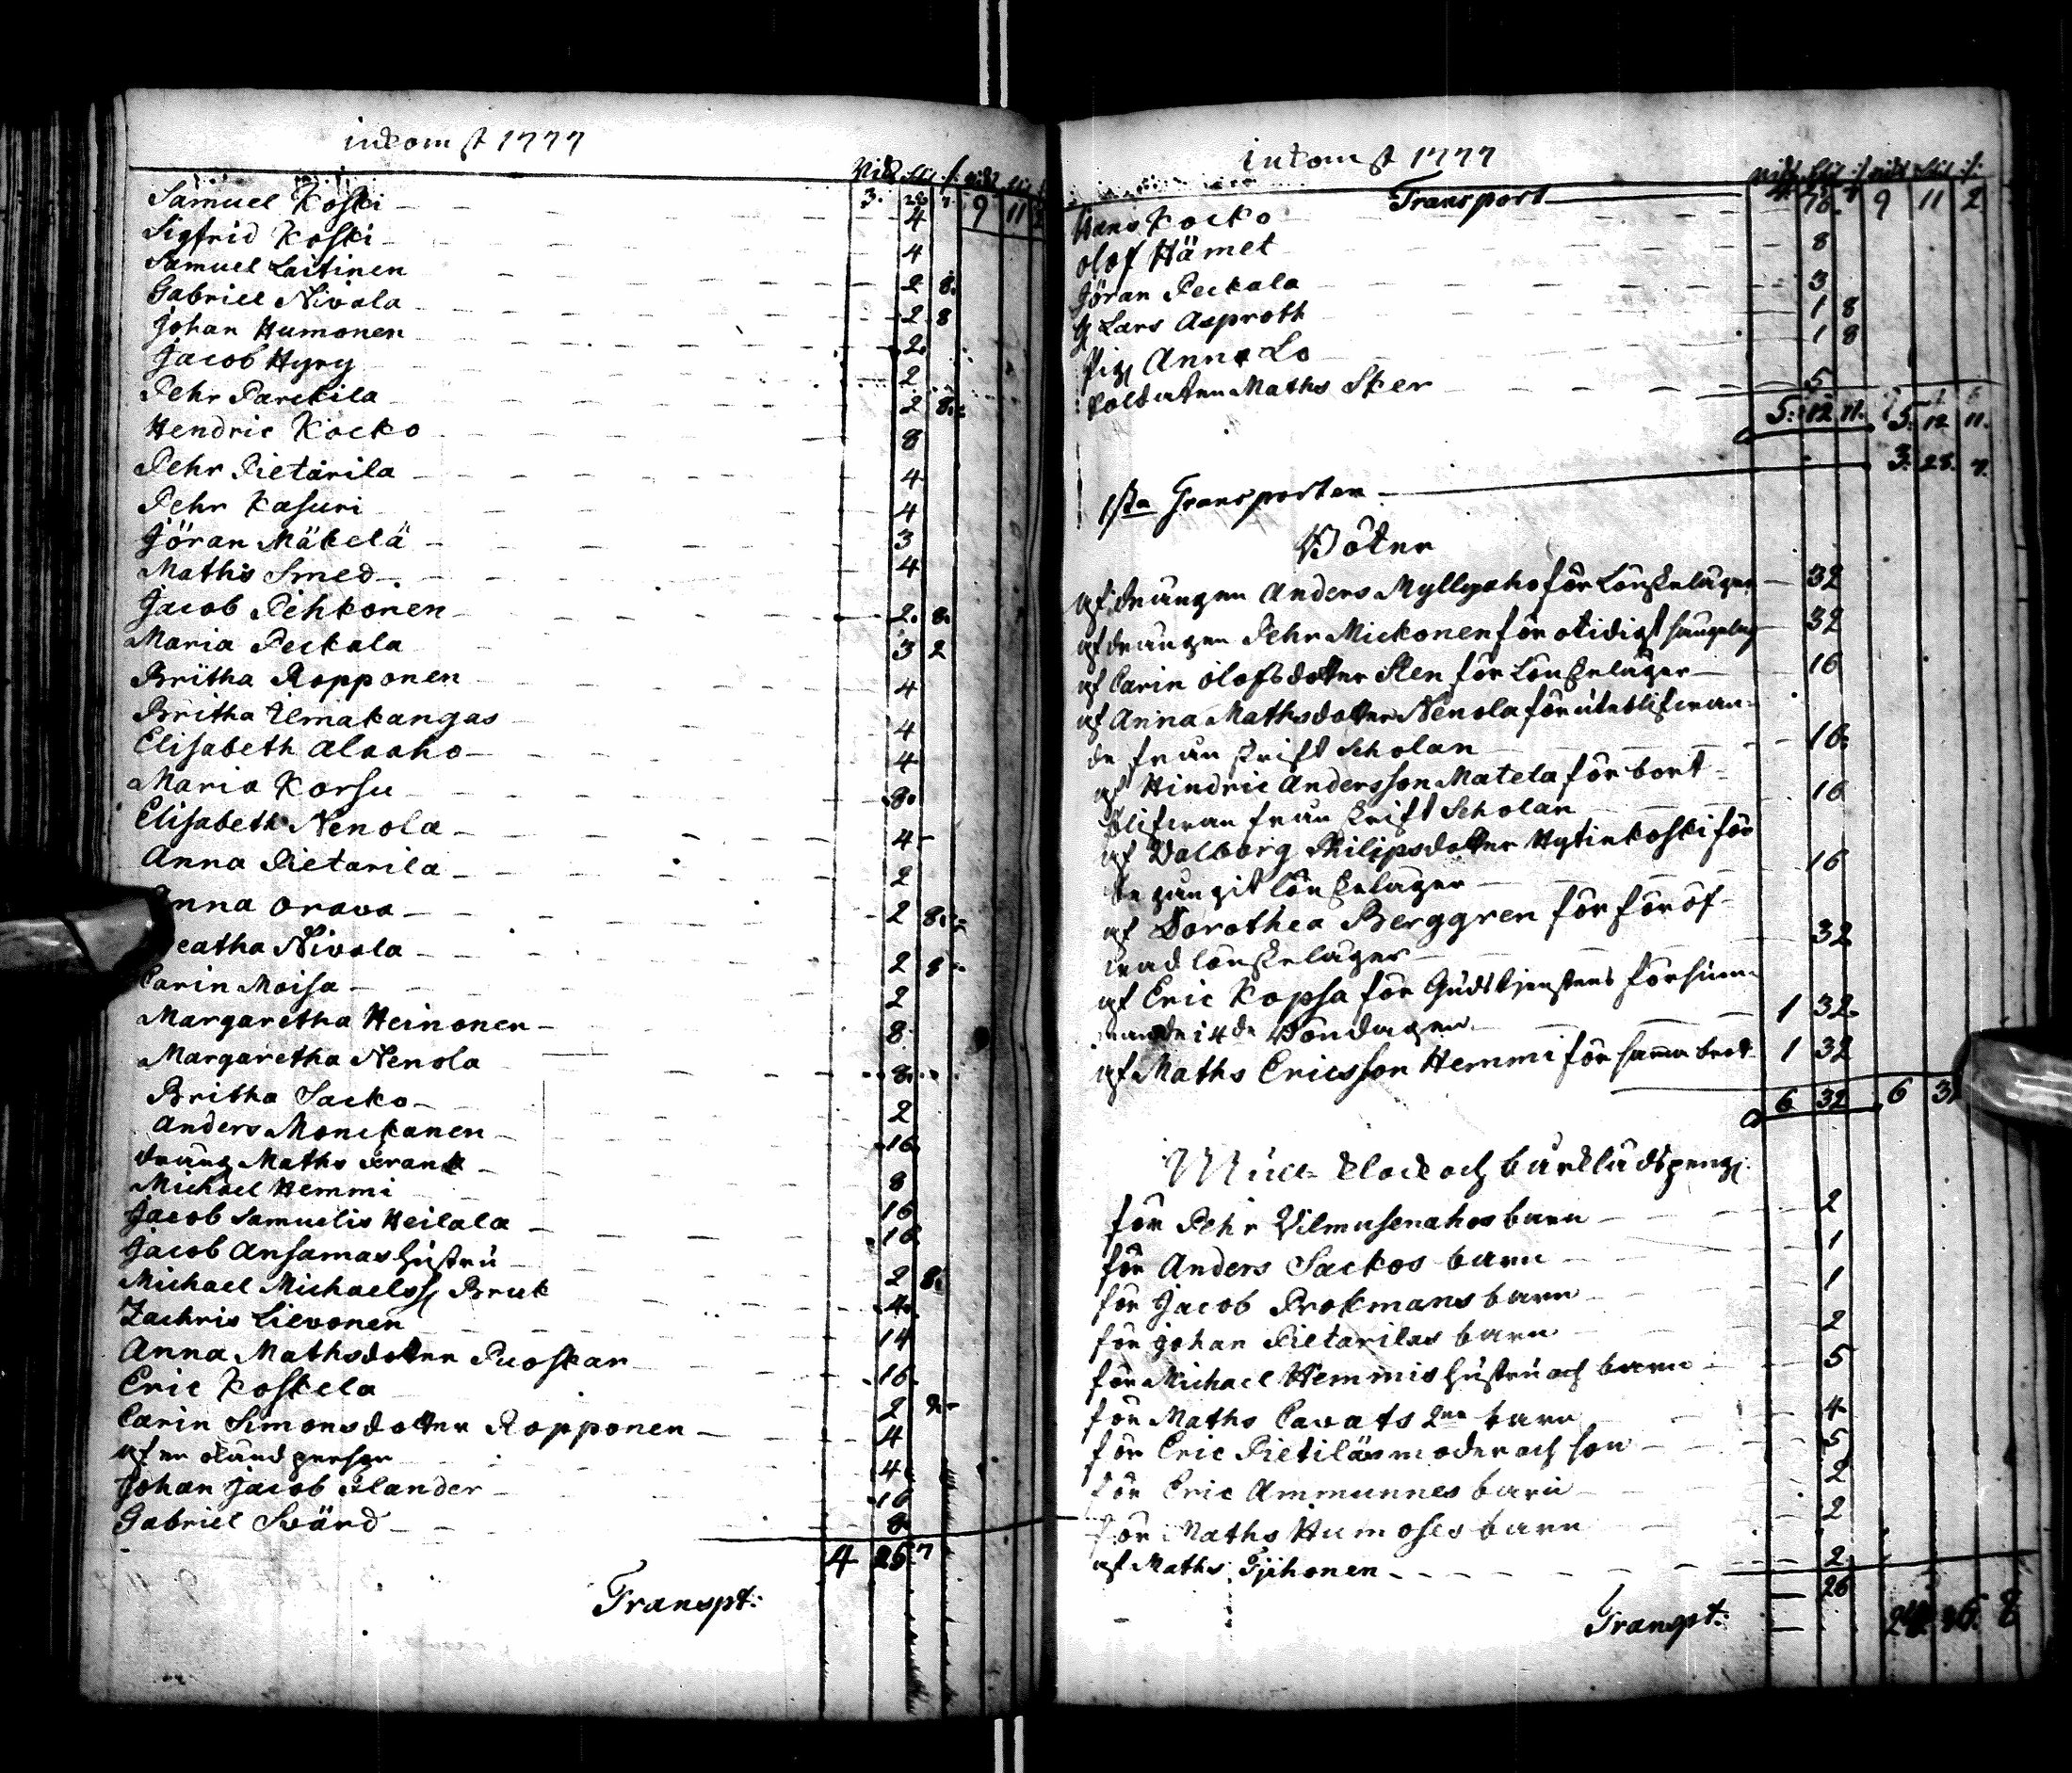 inkomst 1777
Rid Sk :/: Rid Sk
3. 28 7. 9 11 2
Samuel Koski 4
Sigfrid Koski 4
Samuel Laitinen 2 8.
Gabriel Nivala 2 8
Johan Humonen 2.
Jacob Hyry 2
Pehr Parckila 2 8.
Hendric Kocko 8
Pehr Pietarila 4
Pehr Kasuri 4
Jöran Mäkelä 3
Maths Smed 4
Jacob Pehkonen 2. 8.
Maria Peckala 3 2
Britha Ropponen 4
Britha Ilmakangas 4
Elisabeth Alaaho 4
Maria Korsu 8.
Elisabeth Nenola 4
Anna Pietarila 2
Anna Orava 2 8.
Agatha Nivola 2 8
Carin Moisa 2
Margaretha Heinonen 8
Margaretha Nenola 8.
Britha Sacko 2
Anders Monckanen 16
dräng Maths Frank
Michael Hemmi 8
Jacob Samuelis Heilala 16
Jacob Ansamas hustru 16
Michael Michaelss Bruk 2 8.
Zachris Lievonen 4.
Anna Mathsdotter Puoskar 14
Eric Koskela 16
Carin Simonsdotter Ropponen 2
af en okänd person 4
Johan Jacob Flander 16
Gabriel Svärd 8
4 25 7
Transpt:
inkomst 1777
Rid Sk :/: Rid Sk :/:
Transport 9 11 2
Hans Kocko 16.
Olof Hämet 8
Jöran Peckala 3
Lars Asproth 1 8
Pig Anna Lo 1 8
Soldaten Maths Sker 5
5. 12 11. 5. 12 11.
1sta Transporten 3. 28. 7.
Böter
af drängen Anders Myllyaho för Lönskeläger 32
af drängen Pehr Mickonen för otidigt sängelag 32
af Carin Olofsdotter Sten för Lönskeläger 16
af Anna Mathsdotter Nenola för uteblifvan-
de från skrift Scholan 16.
af Hindric Andersson Matela för bort-
blifvan från skrift Scholan 16
af Valborg Philipsdotter Hytinkoski för
begångit lönskeläger 16
af Dorothea Berggren för föröf-
vad lönskeläger 32
af Eric Kopsa för Gudstjenstens försum-
mande i 4de Böndagen 1 32.
af Maths Ericsson Hemmi för samma brott 1 32
6 32 6 3
Mull- klock och bårklädspeng
för Pehr Vilmusenahos barn 2
för Anders Sackos barn 1
för Jacob Brokmans barn 1
för Johan Pietarilas barn 2
för Michael Hemmis hustru och barn 5
för Maths Cavats 2ne barn 4
för Eric Pietiläs moder och son 5
för Eric Ammunnes barn 2
för Maths Humoses barn 2
af Maths Tjihonen 2
26
Transpt: 24. 36. 8